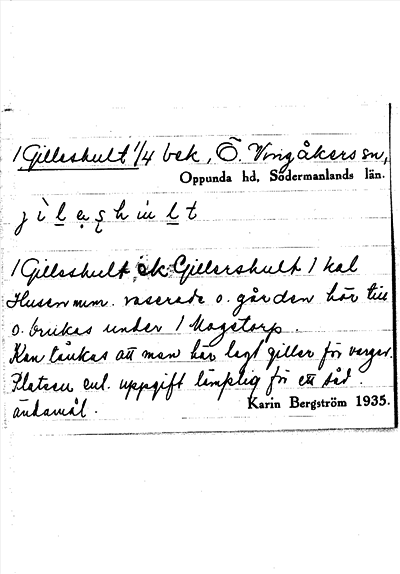 1 Gilleshult 1/4 bek, Ö. Vingåkers sn,
Oppunda hd, Södermanlands län.
j ì l e ş h ù l t
1 Gilleshult ek. Gillershult 1 kal
Husen num. raserade o. gården hör till
o. brukas under 1 Magstorp.
Kan tänkas att man har lagt giller för vargar.
Platsen enl. uppgift lämplig för ett såd.
ändamål.
Karin Bergström 1935.